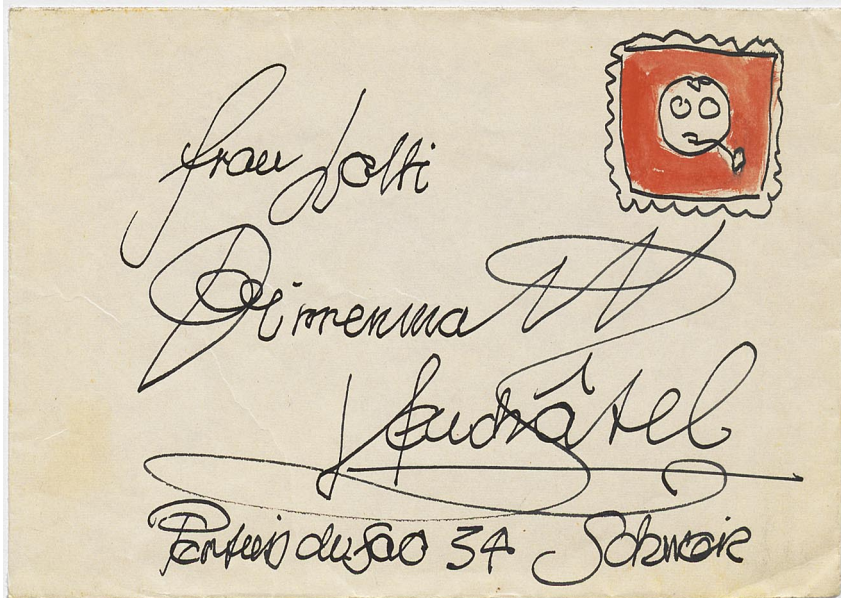 Frau Lotti
Dürrenmatt
Neuchâtel
Pertuis du Sao 34 Schweiz